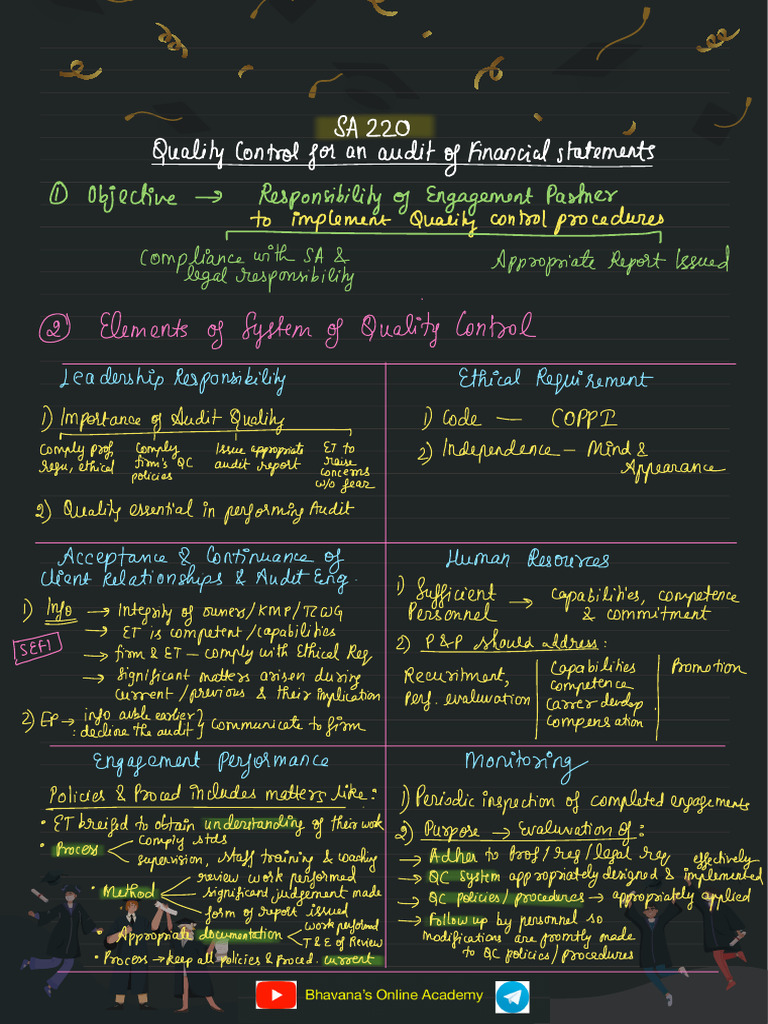 SA 220
Quality Control for an audit of Financial statements
① Objective → Responsibility of Engagement Partner
to implement Quality control procedures
Compliance with SA &
legal responsibility
Appropriate Report Issued
② Elements of System of Quality Control
Leadership Responsibility
1) Importance of Audit Quality
Comply prof
regu, ethical
Comply
firm's QC
policies
Issue appropriate
audit report
ET to
raise
concerns
w/o fear
2) Quality essential in performing Audit
Ethical Requirement
1) Code — COPPI
2) Independence – Mind &
Appearance
Acceptance & Continuance of
Client Relationships & Audit Eng.
1) Info → Integrity of owners/KMP/TCWG
→ ET is competent/capabilities
SEFI
→ firm & ET – comply with Ethical Req
→ Significant matters arisen during
current/previous & their implication
2) EP → info avble earlier }
: decline the audit } communicate to firm
Human Resources
1) Sufficient
Personnel → capabilities, competence
& commitment
2) P&P should address:
Recuritment,
Perf. evaluvation
Capabilities
competence
carrer develop.
compensation
Promotion
Engagement Performance
Policies & Proced includes matters like:
• ET breifed to obtain understanding of their work
• Process < Comply stds
supervision, staff training & coaching
• Method < review work performed
significant judgement made
form of report issued
• Appropriate documentation < work performed
T & E of Review
• Process → keep all policies & Proced. current
Monitoring
1) Periodic inspection of completed engagements
2) Purpose → Evaluvation of:
→ Adher to Prof/reg/legal req
→ QC system appropriately designed & effectively implemented
→ QC policies/procedures → appropriately applied
→ Follow up by personnel so
modifications are promtly made
to QC policies/procedures
Bhavana's Online Academy